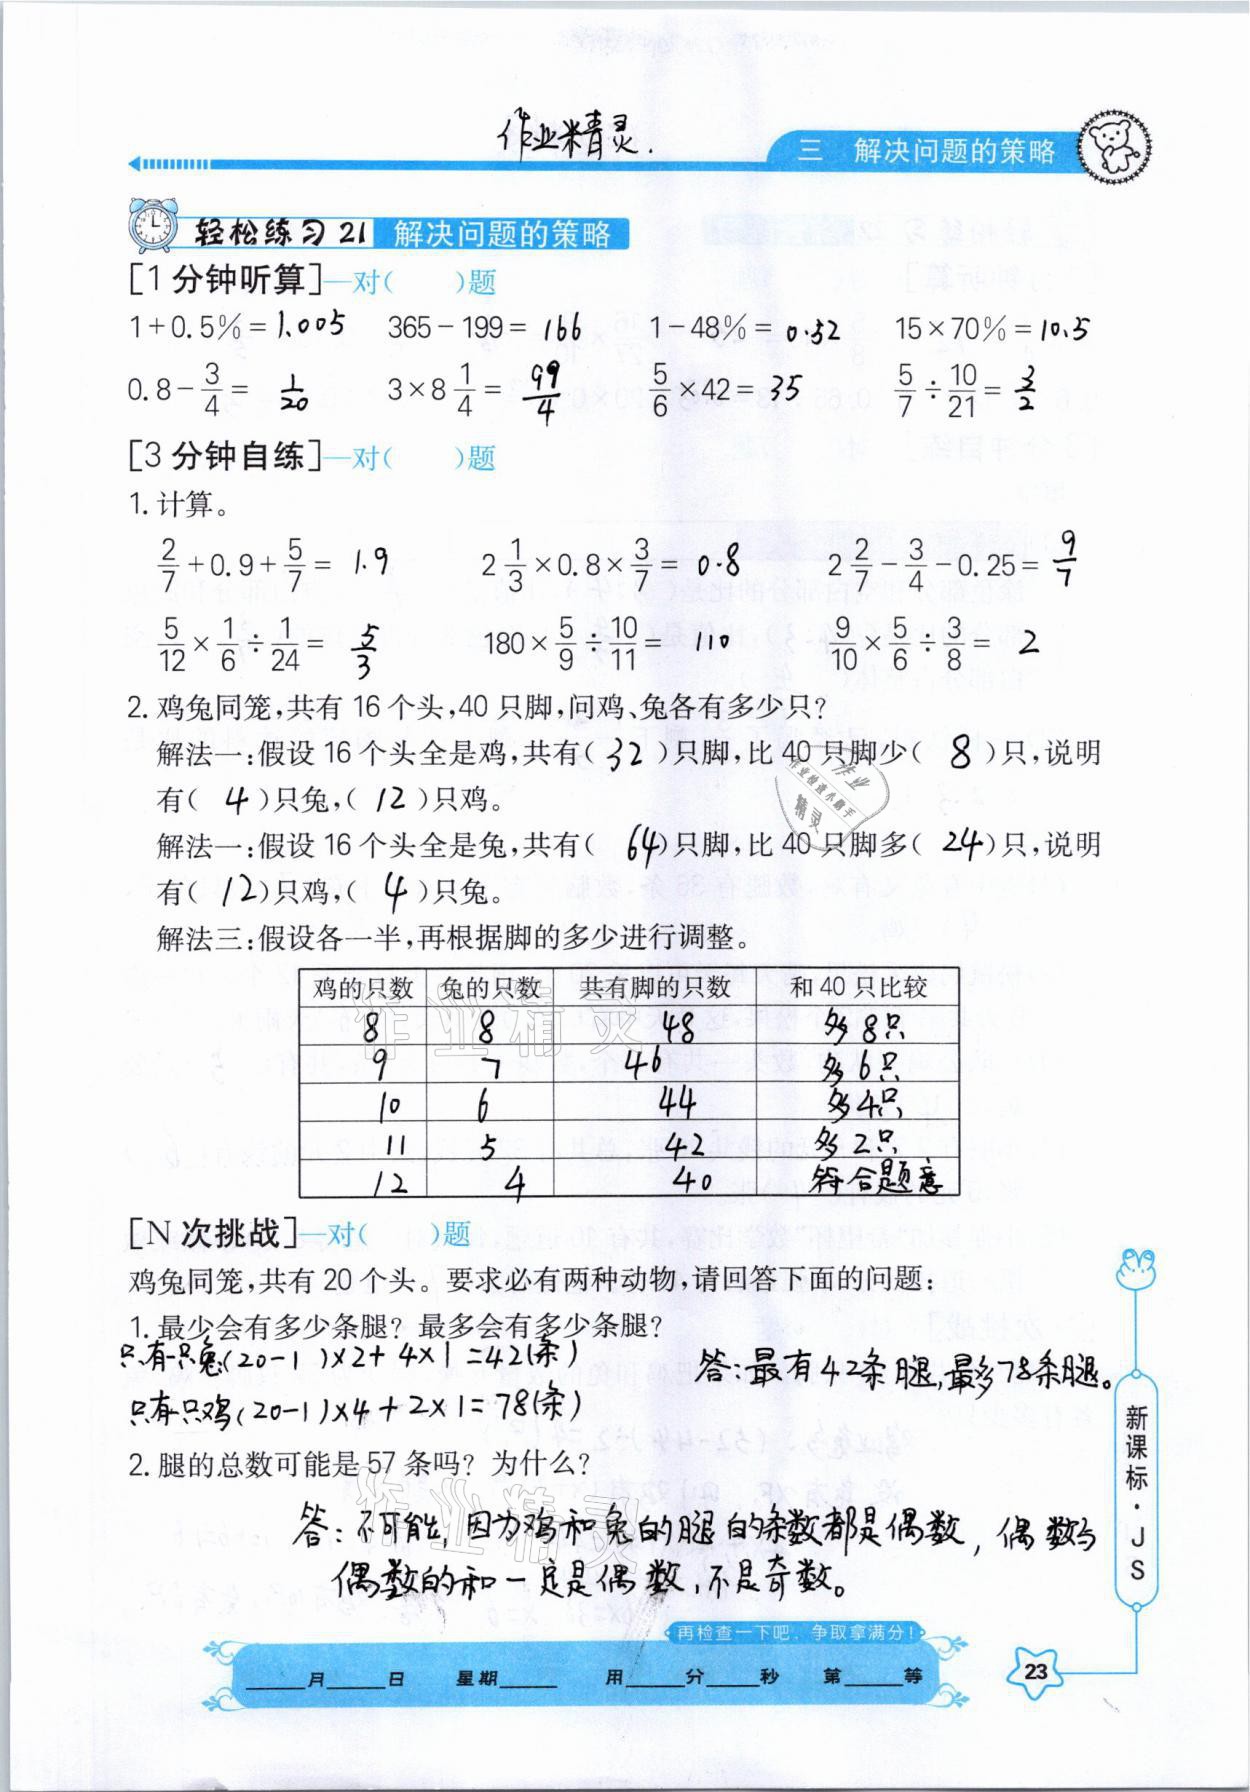 作业精灵.
三 解决问题的策略
轻松练习 21 解决问题的策略
[1分钟听算]—对( )题
1+0.5%=1.005 365-199=166 1-48%=0.52 15×70%=10.5
0.8-3/4=1/20 3×8 1/4=99/4 5/6×42=35 5/7÷10/21=3/2
[3分钟自练]—对( )题
1. 计算。
2/7+0.9+5/7=1.9 2 1/3×0.8×3/7=0.8 2 2/7-3/4-0.25=9/7
5/12×1/6÷1/24=5/3 180×5/9÷10/11=110 9/10×5/6÷3/8=2
2. 鸡兔同笼,共有16个头,40只脚,问鸡、兔各有多少只?
解法一:假设16个头全是鸡,共有(32)只脚,比40只脚少(8)只,说明
有(4)只兔,(12)只鸡。
解法一:假设16个头全是兔,共有(64)只脚,比40只脚多(24)只,说明
有(12)只鸡,(4)只兔。
解法三:假设各一半,再根据脚的多少进行调整。
鸡的只数 兔的只数 共有脚的只数 和40只比较
8 8 48 多8只
9 7 46 多6只
10 6 44 多4只
11 5 42 多2只
12 4 40 符合题意
[N次挑战]—对( )题
鸡兔同笼,共有20个头。要求必有两种动物,请回答下面的问题:
1. 最少会有多少条腿? 最多会有多少条腿?
只有一只兔(20-1)×2+4×1=42(条) 答:最有42条腿,最多78条腿。
只有一只鸡(20-1)×4+2×1=78(条)
2. 腿的总数可能是57条吗? 为什么?
答:不可能,因为鸡和兔的腿的条数都是偶数,偶数与
偶数的和一定是偶数,不是奇数。
新课标·JS
再检查一下吧,争取拿满分!
月 日 星期 用 分 秒 第 等
23
作业精灵
作业快速小助手
作业精灵
作业精灵